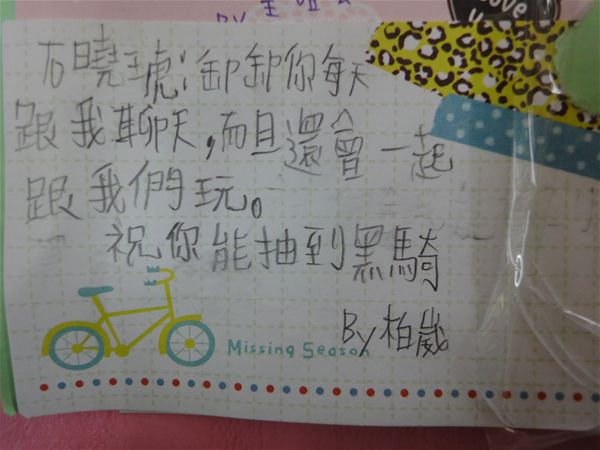 石曉琥:卸卸你每天
跟我聊天,而且還會一起
跟我們玩。
祝你能抽到黑騎
By 柏崴
Missing Season